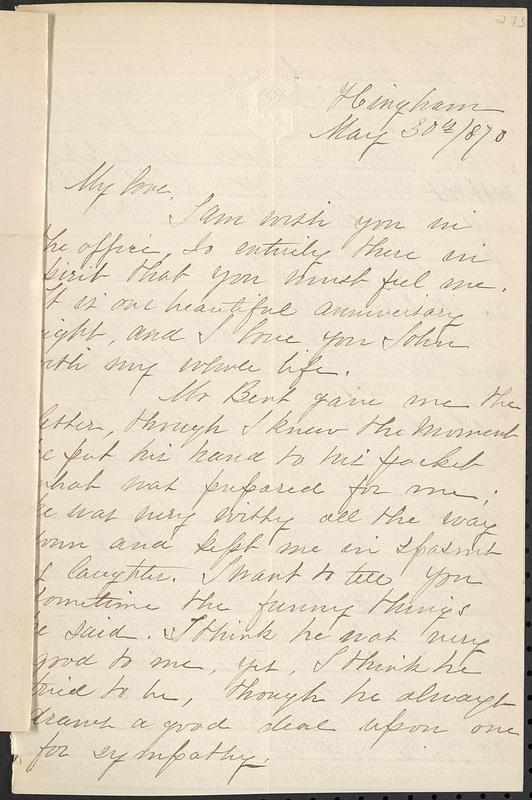 233
Hingham
May 30th/870
My love,
I am with you in
the office, so entirely there in
spirit that you must feel me.
It is our beautiful anniversary
night, and I love you John
with my whole life.
Mr Bent gave me the
letter, though I knew the moment
he put his hand to his pocket
what was prepared for me;
he was very witty all the way
down and kept me in spasms
of laughter. I want to tell you
sometime the funny things
he said. I think he was very
good to me, yes, I think he
tried to be, though he always
draws a good deal upon one
for sympathy.